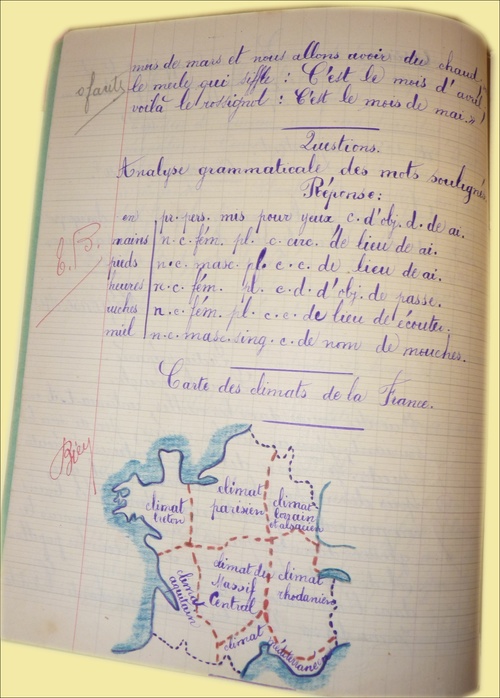 mois de mars et nous allons avoir du chaud.
0 faute
le merle qui siffle : C'est le mois d'avril
voilà le rossignol : C'est le mois de mai. »
Questions.
Analyse grammaticale des mots soulignés
Réponse :
en pr. pers. mis pour yeux c. d'obj. d. de ai.
T.B.
mains n.c. fém. pl. c. circ. de lieu de ai.
pieds n.c. masc. pl. c.c. de lieu de ai.
heures n.c. fém. pl. c.d. d'obj. de passe.
ruches n.c. fém. pl. c.c. de lieu de écouter.
miel n.c. masc. sing. c. de nom de mouches.
Carte des climats de la France.
Bien
climat breton
climat parisien
climat lorrain et alsacien
climat aquitain
climat du Massif Central
climat rhodanien
climat méditerranéen